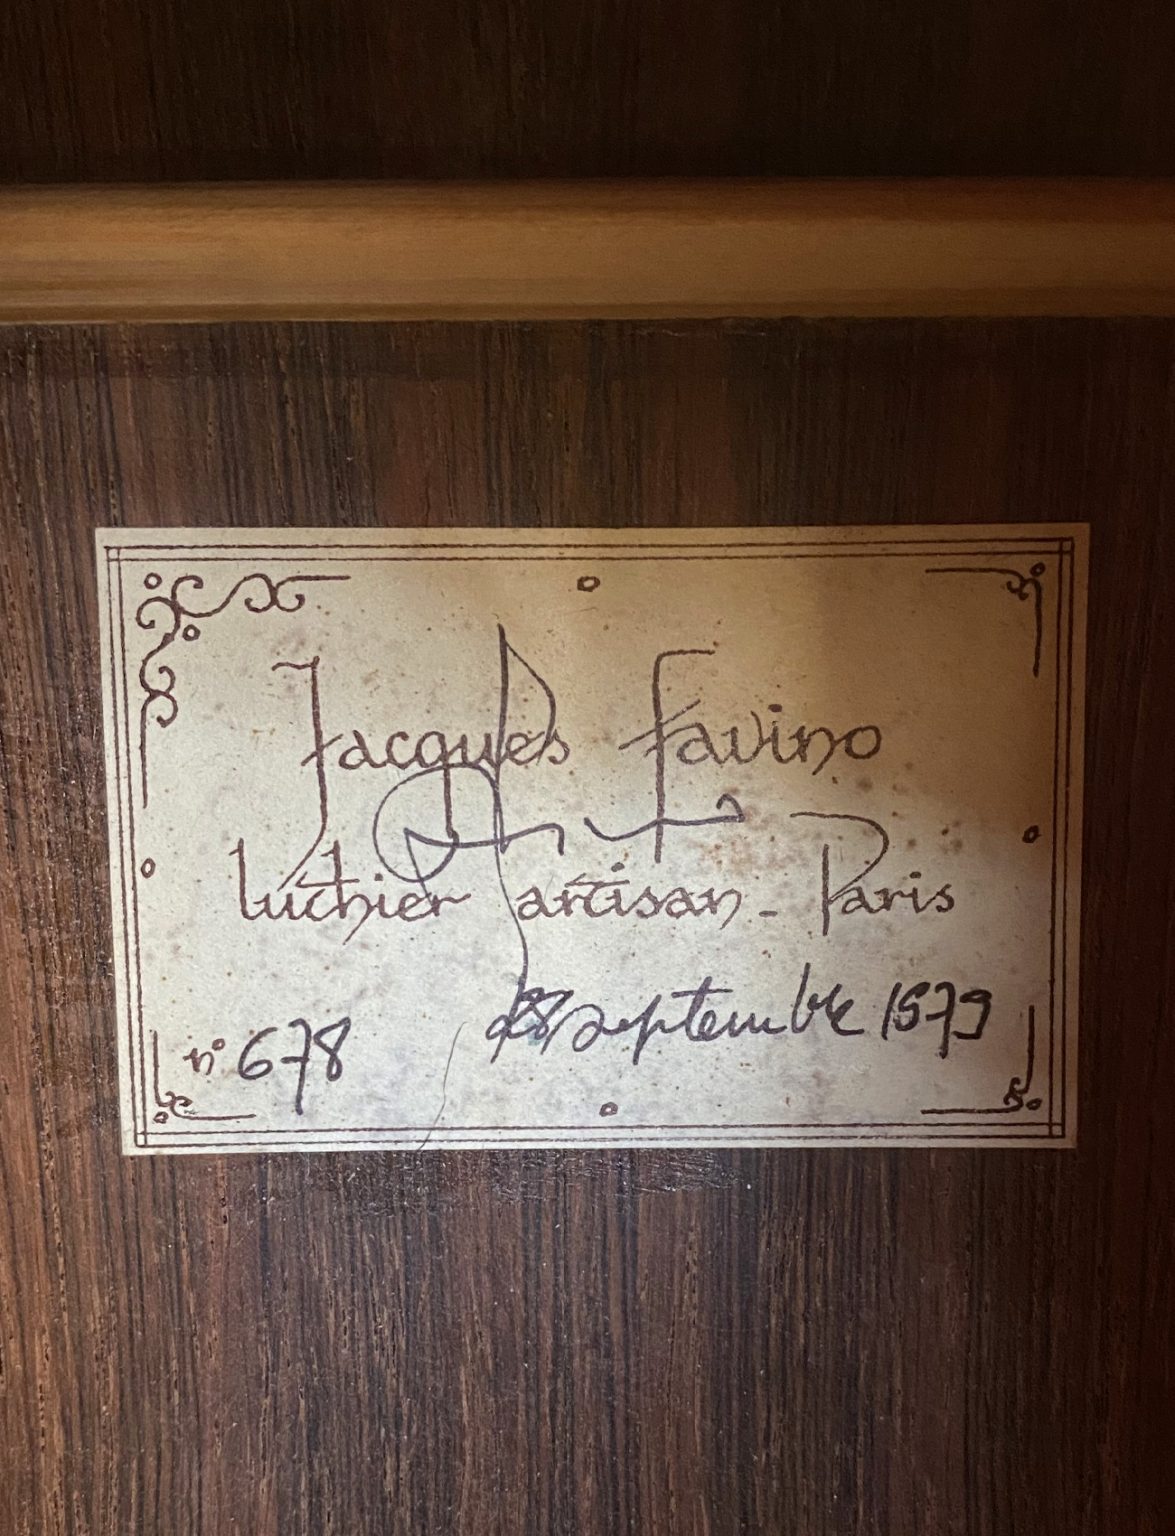 Jacques Favino
luthier artisan - Paris
n° 678 septembre 1979